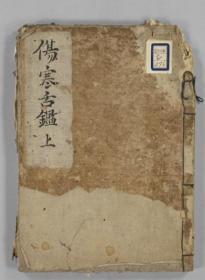 傷寒舌鑑 上